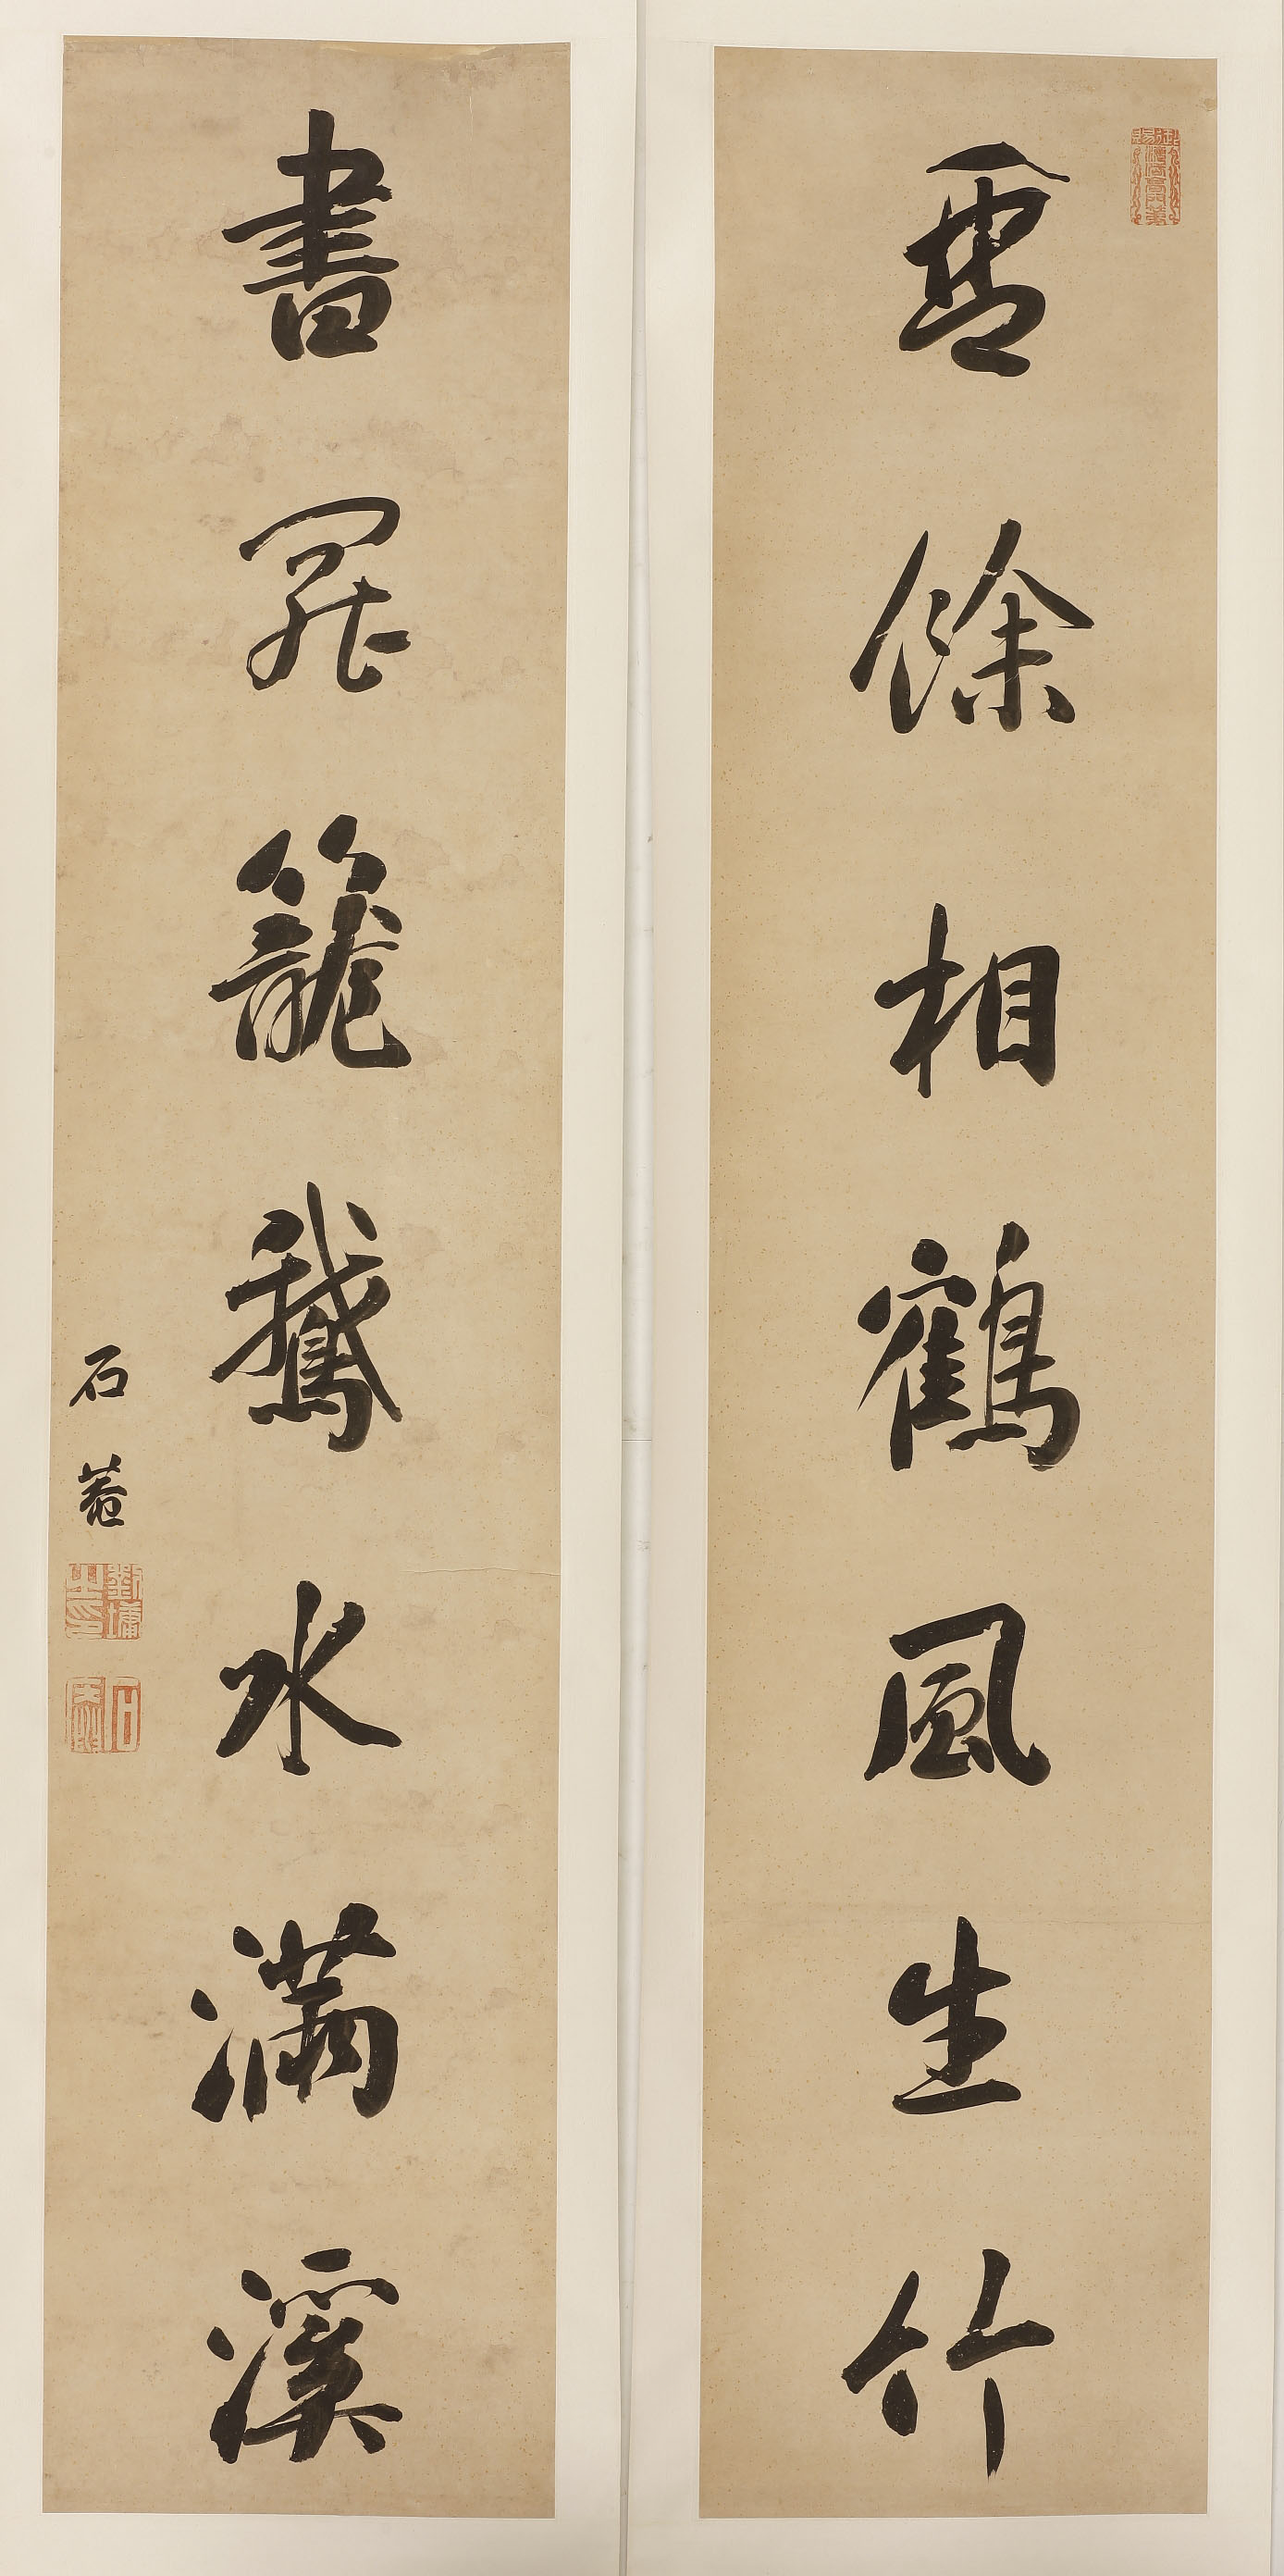 餘相鶴風生竹
書罷籠鵝水滿溪
石菴
劉墉之印